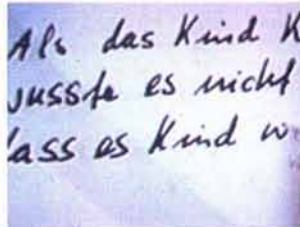 Als das Kind K
wusste es nicht
dass es Kind w